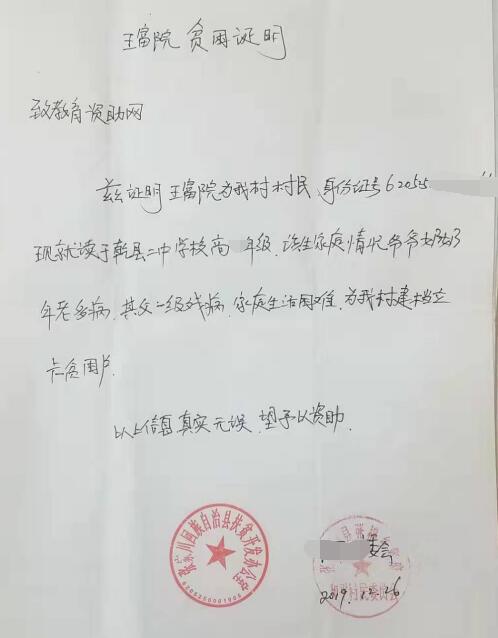 王富院 贫困证明
致教育资助网
兹证明王富院为我村村民,身份证号62052
现就读于乾县二中学校高 年级,该生家庭情况爷爷奶奶
年老多病,其父二级残病,家庭生活困难,为我村建档立
卡贫困户.
以上信息真实无误,望予以资助.
张家川回族自治县扶贫开发办公室
6205250001906
委会
村村民委员会
2019.12.26